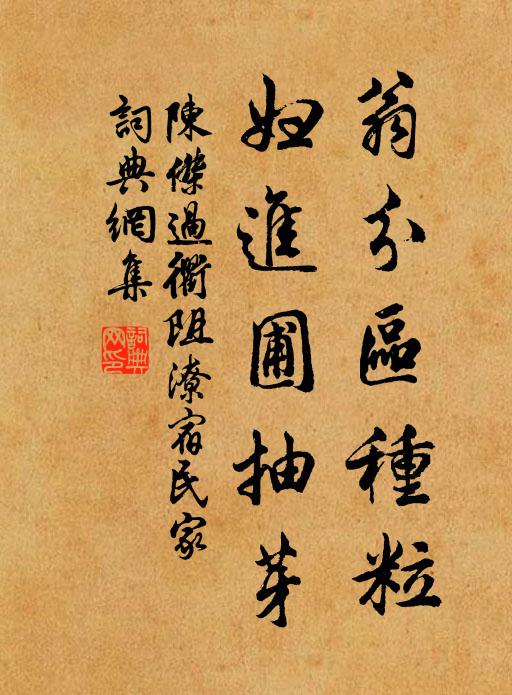 翁分區種粒
妇進圃抽芽
陳傑過衢阻潦宿民家
詞典網集
詞典
网印